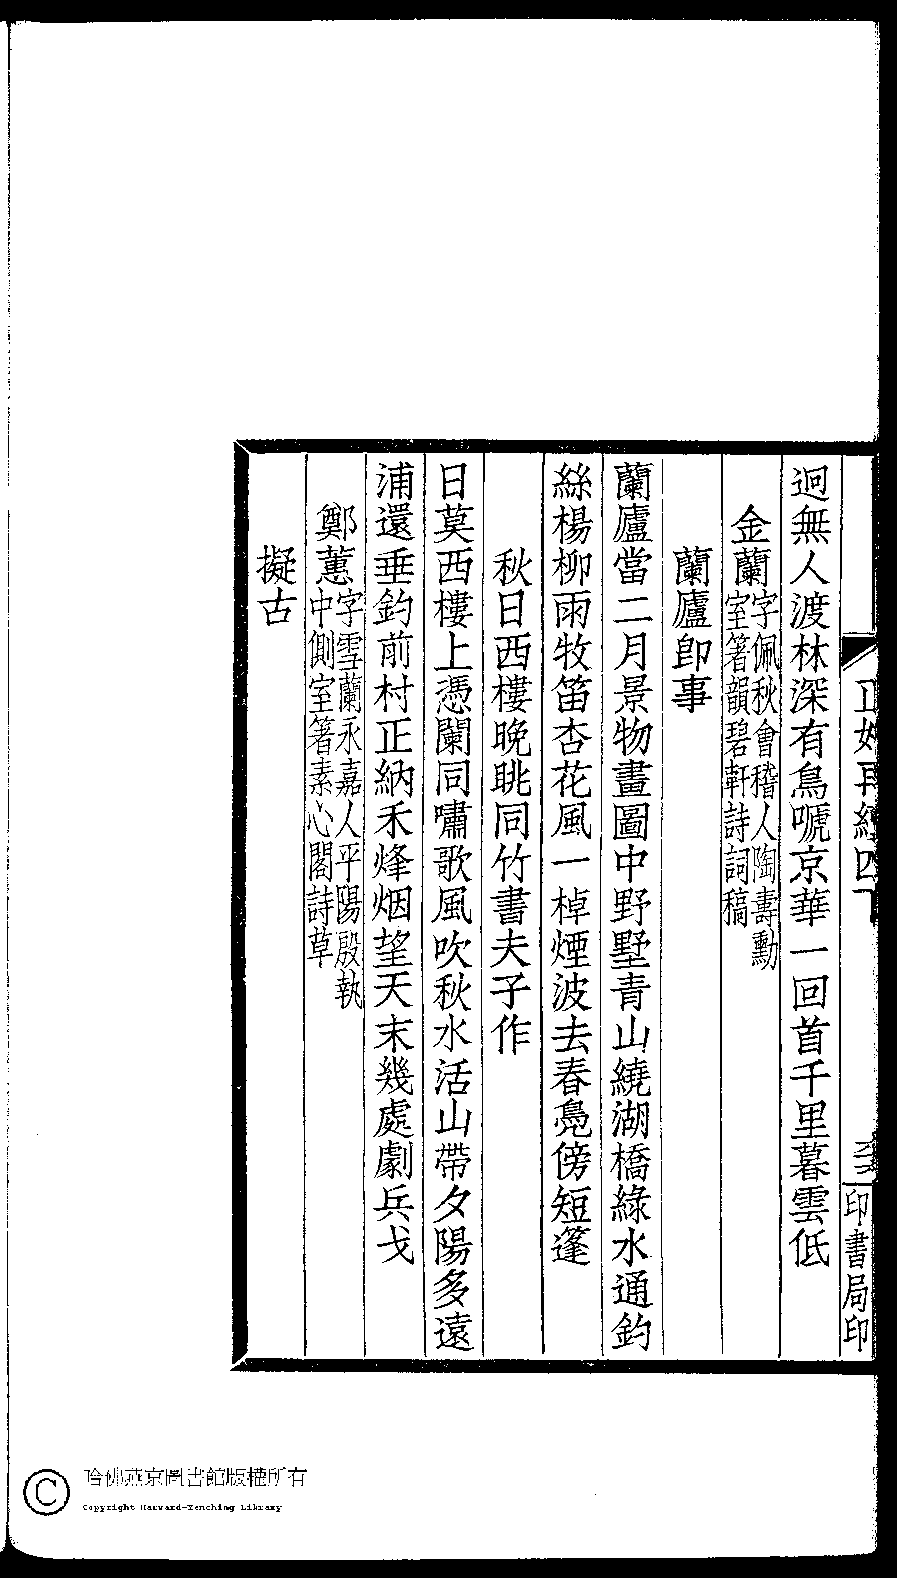 正始再續四下
印書局印
迥無人渡林深有鳥嗁京華一回首千里暮雲低
金蘭
字佩秋會稽人陶壽勳
室箸韻碧軒詩詞稿
蘭廬卽事
蘭廬當二月景物畫圖中野墅青山繞湖橋綠水通釣
絲楊柳雨牧笛杏花風一棹煙波去春鳧傍短篷
秋日西樓晚眺同竹書夫子作
日莫西樓上憑闌同嘯歌風吹秋水活山帶夕陽多遠
浦還垂釣前村正納禾烽烟望天末幾處劇兵戈
鄭蕙
字雪蘭永嘉人平陽殷執
中側室箸素心閣詩草
擬古
哈佛燕京圖書館版權所有
Copyright Harvard-Yenching Library